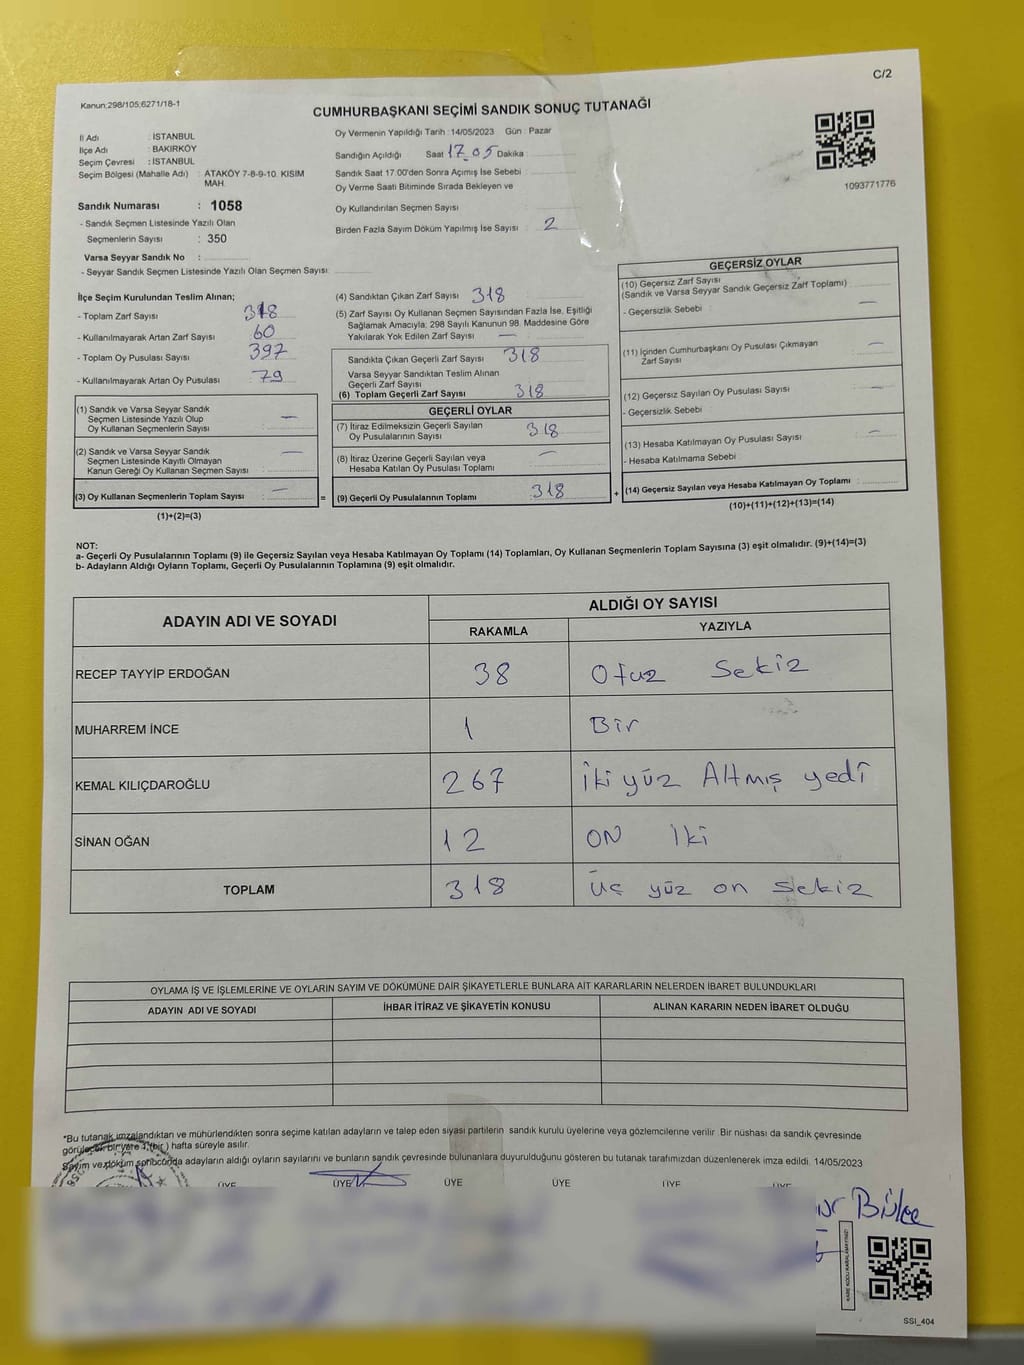 C/2
Kanun:298/105;6271/18-1
CUMHURBAŞKANI SEÇİMİ SANDIK SONUÇ TUTANAĞI
İl Adı : İSTANBUL
İlçe Adı : BAKIRKÖY
Seçim Çevresi : İSTANBUL
Seçim Bölgesi (Mahalle Adı) : ATAKÖY 7-8-9-10. KISIM
MAH.
Sandık Numarası : 1058
- Sandık Seçmen Listesinde Yazılı Olan
Seçmenlerin Sayısı : 350
Varsa Seyyar Sandık No :
- Seyyar Sandık Seçmen Listesinde Yazılı Olan Seçmen Sayısı:
Oy Vermenin Yapıldığı Tarih : 14/05/2023 Gün : Pazar
Sandığın Açıldığı Saat 17.05 Dakika :
Sandık Saat 17.00'den Sonra Açımış İse Sebebi :
Oy Verme Saati Bitiminde Sırada Bekleyen ve
Oy Kullandırılan Seçmen Sayısı :
Birden Fazla Sayım Döküm Yapılmış İse Sayısı : 2
1093771776
İlçe Seçim Kurulundan Teslim Alınan;
- Toplam Zarf Sayısı : 
- Kullanılmayarak Artan Zarf Sayısı : 60
- Toplam Oy Pusulası Sayısı : 397
- Kullanılmayarak Artan Oy Pusulası : 79
(1) Sandık ve Varsa Seyyar Sandık
Seçmen Listesinde Yazılı Olup
Oy Kullanan Seçmenlerin Sayısı : —
(2) Sandık ve Varsa Seyyar Sandık
Seçmen Listesinde Kayıtlı Olmayan
Kanun Gereği Oy Kullanan Seçmen Sayısı : —
(3) Oy Kullanan Seçmenlerin Toplam Sayısı : — =
(1)+(2)=(3)
(4) Sandıktan Çıkan Zarf Sayısı : 318
(5) Zarf Sayısı Oy Kullanan Seçmen Sayısından Fazla İse, Eşitliği
Sağlamak Amacıyla; 298 Sayılı Kanunun 98. Maddesine Göre
Yakılarak Yok Edilen Zarf Sayısı : —
Sandıkta Çıkan Geçerli Zarf Sayısı : 318
Varsa Seyyar Sandıktan Teslim Alınan
Geçerli Zarf Sayısı
(6) Toplam Geçerli Zarf Sayısı : 318
GEÇERLİ OYLAR
(7) İtiraz Edilmeksizin Geçerli Sayılan
Oy Pusulalarının Sayısı : 318
(8) İtiraz Üzerine Geçerli Sayılan veya
Hesaba Katılan Oy Pusulası Toplamı : —
(9) Geçerli Oy Pusulalarının Toplamı : 318 +
GEÇERSİZ OYLAR
(10) Geçersiz Zarf Sayısı
(Sandık ve Varsa Seyyar Sandık Geçersiz Zarf Toplamı) :
- Geçersizlik Sebebi : —
(11) İçinden Cumhurbaşkanı Oy Pusulası Çıkmayan
Zarf Sayısı : —
(12) Geçersiz Sayılan Oy Pusulası Sayısı : —
- Geçersizlik Sebebi
(13) Hesaba Katılmayan Oy Pusulası Sayısı : —
- Hesaba Katılmama Sebebi
(14) Geçersiz Sayılan veya Hesaba Katılmayan Oy Toplamı :
(10)+(11)+(12)+(13)=(14)
NOT:
a- Geçerli Oy Pusulalarının Toplamı (9) ile Geçersiz Sayılan veya Hesaba Katılmayan Oy Toplamı (14) Toplamları, Oy Kullanan Seçmenlerin Toplam Sayısına (3) eşit olmalıdır. (9)+(14)=(3)
b- Adayların Aldığı Oyların Toplamı, Geçerli Oy Pusulalarının Toplamına (9) eşit olmalıdır.
ADAYIN ADI VE SOYADI ALDIĞI OY SAYISI
RAKAMLA YAZIYLA
RECEP TAYYİP ERDOĞAN 38 Otuz Sekiz
MUHARREM İNCE 1 Bir
KEMAL KILIÇDAROĞLU 267 İki yüz Altmış yedi
SİNAN OĞAN 12 ON İki
TOPLAM 318 Üç yüz on sekiz
OYLAMA İŞ VE İŞLEMLERİNE VE OYLARIN SAYIM VE DÖKÜMÜNE DAİR ŞİKAYETLERLE BUNLARA AİT KARARLARIN NELERDEN İBARET BULUNDUKLARI
ADAYIN ADI VE SOYADI İHBAR İTİRAZ VE ŞİKAYETİN KONUSU ALINAN KARARIN NEDEN İBARET OLDUĞU
*Bu tutanak imzalandıktan ve mühürlendikten sonra seçime katılan adayların ve talep eden siyasi partilerin sandık kurulu üyelerine veya gözlemcilerine verilir. Bir nüshası da sandık çevresinde
görülecek bir yere 1 (bir) hafta süreyle asılır.
Sayım ve döküm sonucunda adayların aldığı oyların sayılarını ve bunların sandık çevresinde bulunanlara duyurulduğunu gösteren bu tutanak tarafımızdan düzenlenerek imza edildi. 14/05/2023
ÜYE ÜYE ÜYE ÜYE ÜYE
SSI_404